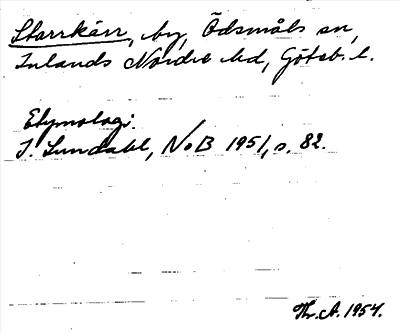 Starrkärr, by, Ödsmåls sn,
Inlands Nordre hd, Göteb. l.
Etymologi.
I. Lundahl, NoB 1951, s. 82.
Thr. A. 1954.